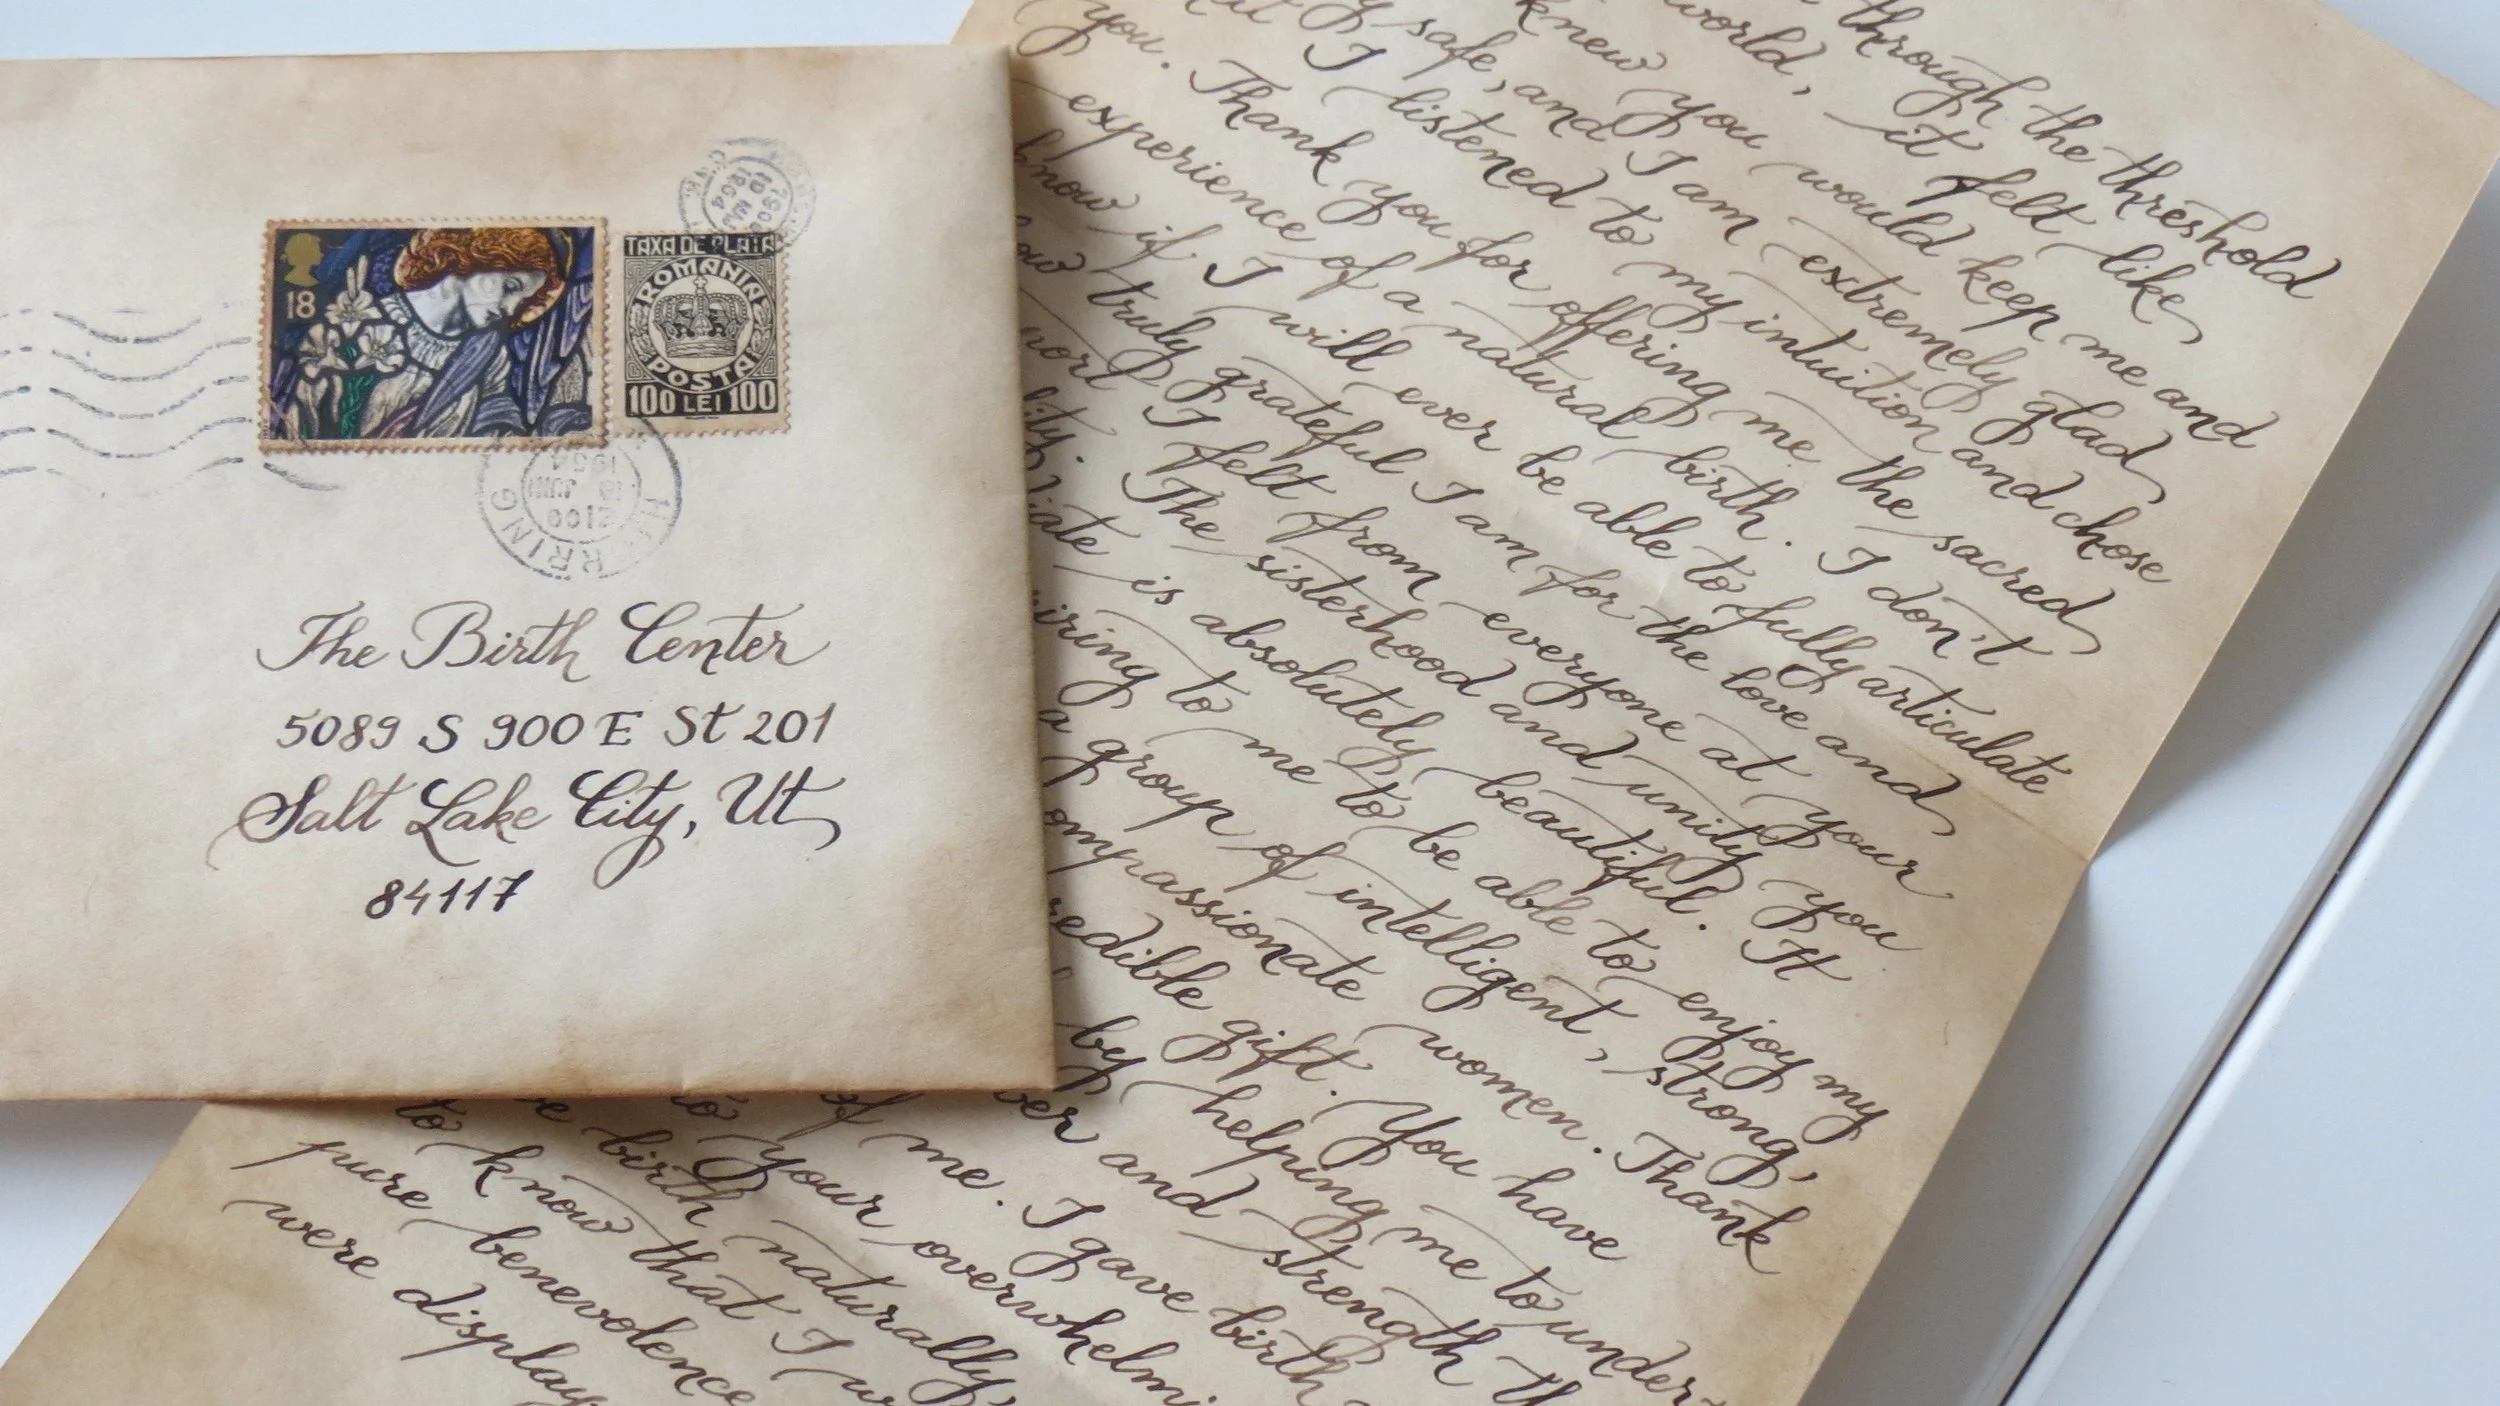 18
TAXA DE PLATA
ROMANIA
POSTA
100 LEI 100
1954
The Birth Center
5089 S 900 E St 201
Salt Lake City, Ut
84117
through the threshold
world, it felt like
knew you would keep me and
safe, and I am extremely glad
I listened to my intuition and chose
you. Thank you for offering me the sacred
experience of a natural birth. I don't
know if I will ever be able to fully articulate
truly grateful I am for the love and
I felt from everyone at your
The sisterhood and unity you
is absolutely beautiful. It
to me to be able to enjoy my
a group of intelligent, strong,
women. Thank
gift. You have
by helping me to under-
and strength
of me. I gave birth
to your
birth naturally,
to know that I
pure benevolence
were